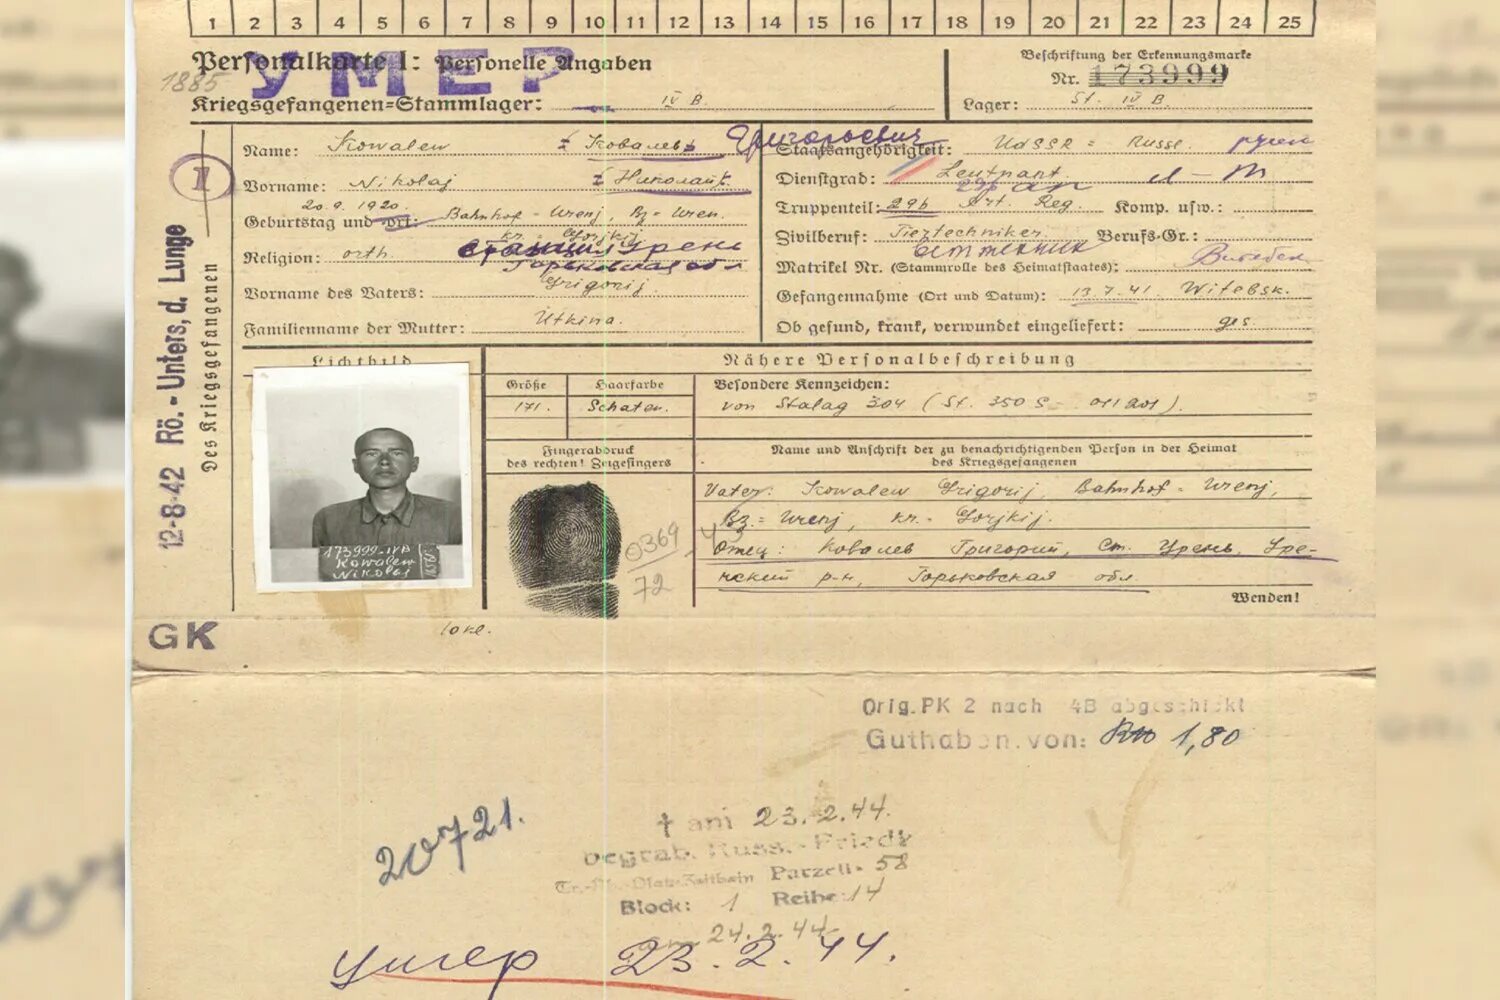 1 2 3 4 5 6 7 8 9 10 11 12 13 14 15 16 17 18 19 20 21 22 23 24 25
Personalkarte I: Personelle Angaben
УМЕР
1885
Beschriftung der Erkennungsmarke
Nr. 173999
Kriegsgefangenen=Stammlager: IV B.
Lager: St. IV B.
I
Des Kriegsgefangenen
12-8-42 Rö.-Unters. d. Lunge
Name: Kowalew Ковалев Григорьевич
Vorname: Nikolaj Николай
20.9.1920.
Geburtstag und Ort: Bahnhof=Urenj, Bz=Uren.
kr. Gorjkij
Religion: orth. станция Урень
Горьковская обл
Vorname des Vaters: Grigorij.
Familienname der Mutter: Utkina.
Staatsangehörigkeit: UdSSR = Russe.
Dienstgrad: Leutnant. л-т
296 ап
Truppenteil: 296 Art. Reg. Komp. usw.:
Zivilberuf: Tiertechniker. Berufs-Gr.:
Matrikel Nr. (Stammrolle des Heimatstaates): Витебск
Gefangennahme (Ort und Datum): 13.7.41. Witebsk.
Ob gesund, krank, verwundet eingeliefert: ges.
Lichtbild
Nähere Personalbeschreibung
Größe Haarfarbe Besondere Kennzeichen:
171. Schaten. von Stalag 304 (St. 350 S - 011201).
Fingerabdruck
des rechten! Zeigefingers
Name und Anschrift der zu benachrichtigenden Person in der Heimat
des Kriegsgefangenen
Vater: Kowalew Grigorij, Bahnhof=Urenj,
Bz.=Urenj, kr.-Gorjkij.
Отец: Ковалев Григорий, Ст. Урень, Уре-
нский р-н, Горьковская обл.
Wenden!
173999-IVB
Kowalew
Nikolaj
0369
72
GK
Orig.PK 2 nach 4B abgeschickt
Guthaben.von: RM 1,80
20721.
† am 23.2.44.
begrab. Russ.-Friedh
Tr.-Üb.-Platz Zeithain Parzell- 58
Block: 1 Reihe: 14
am 24.2.44
умер 23.2.44.